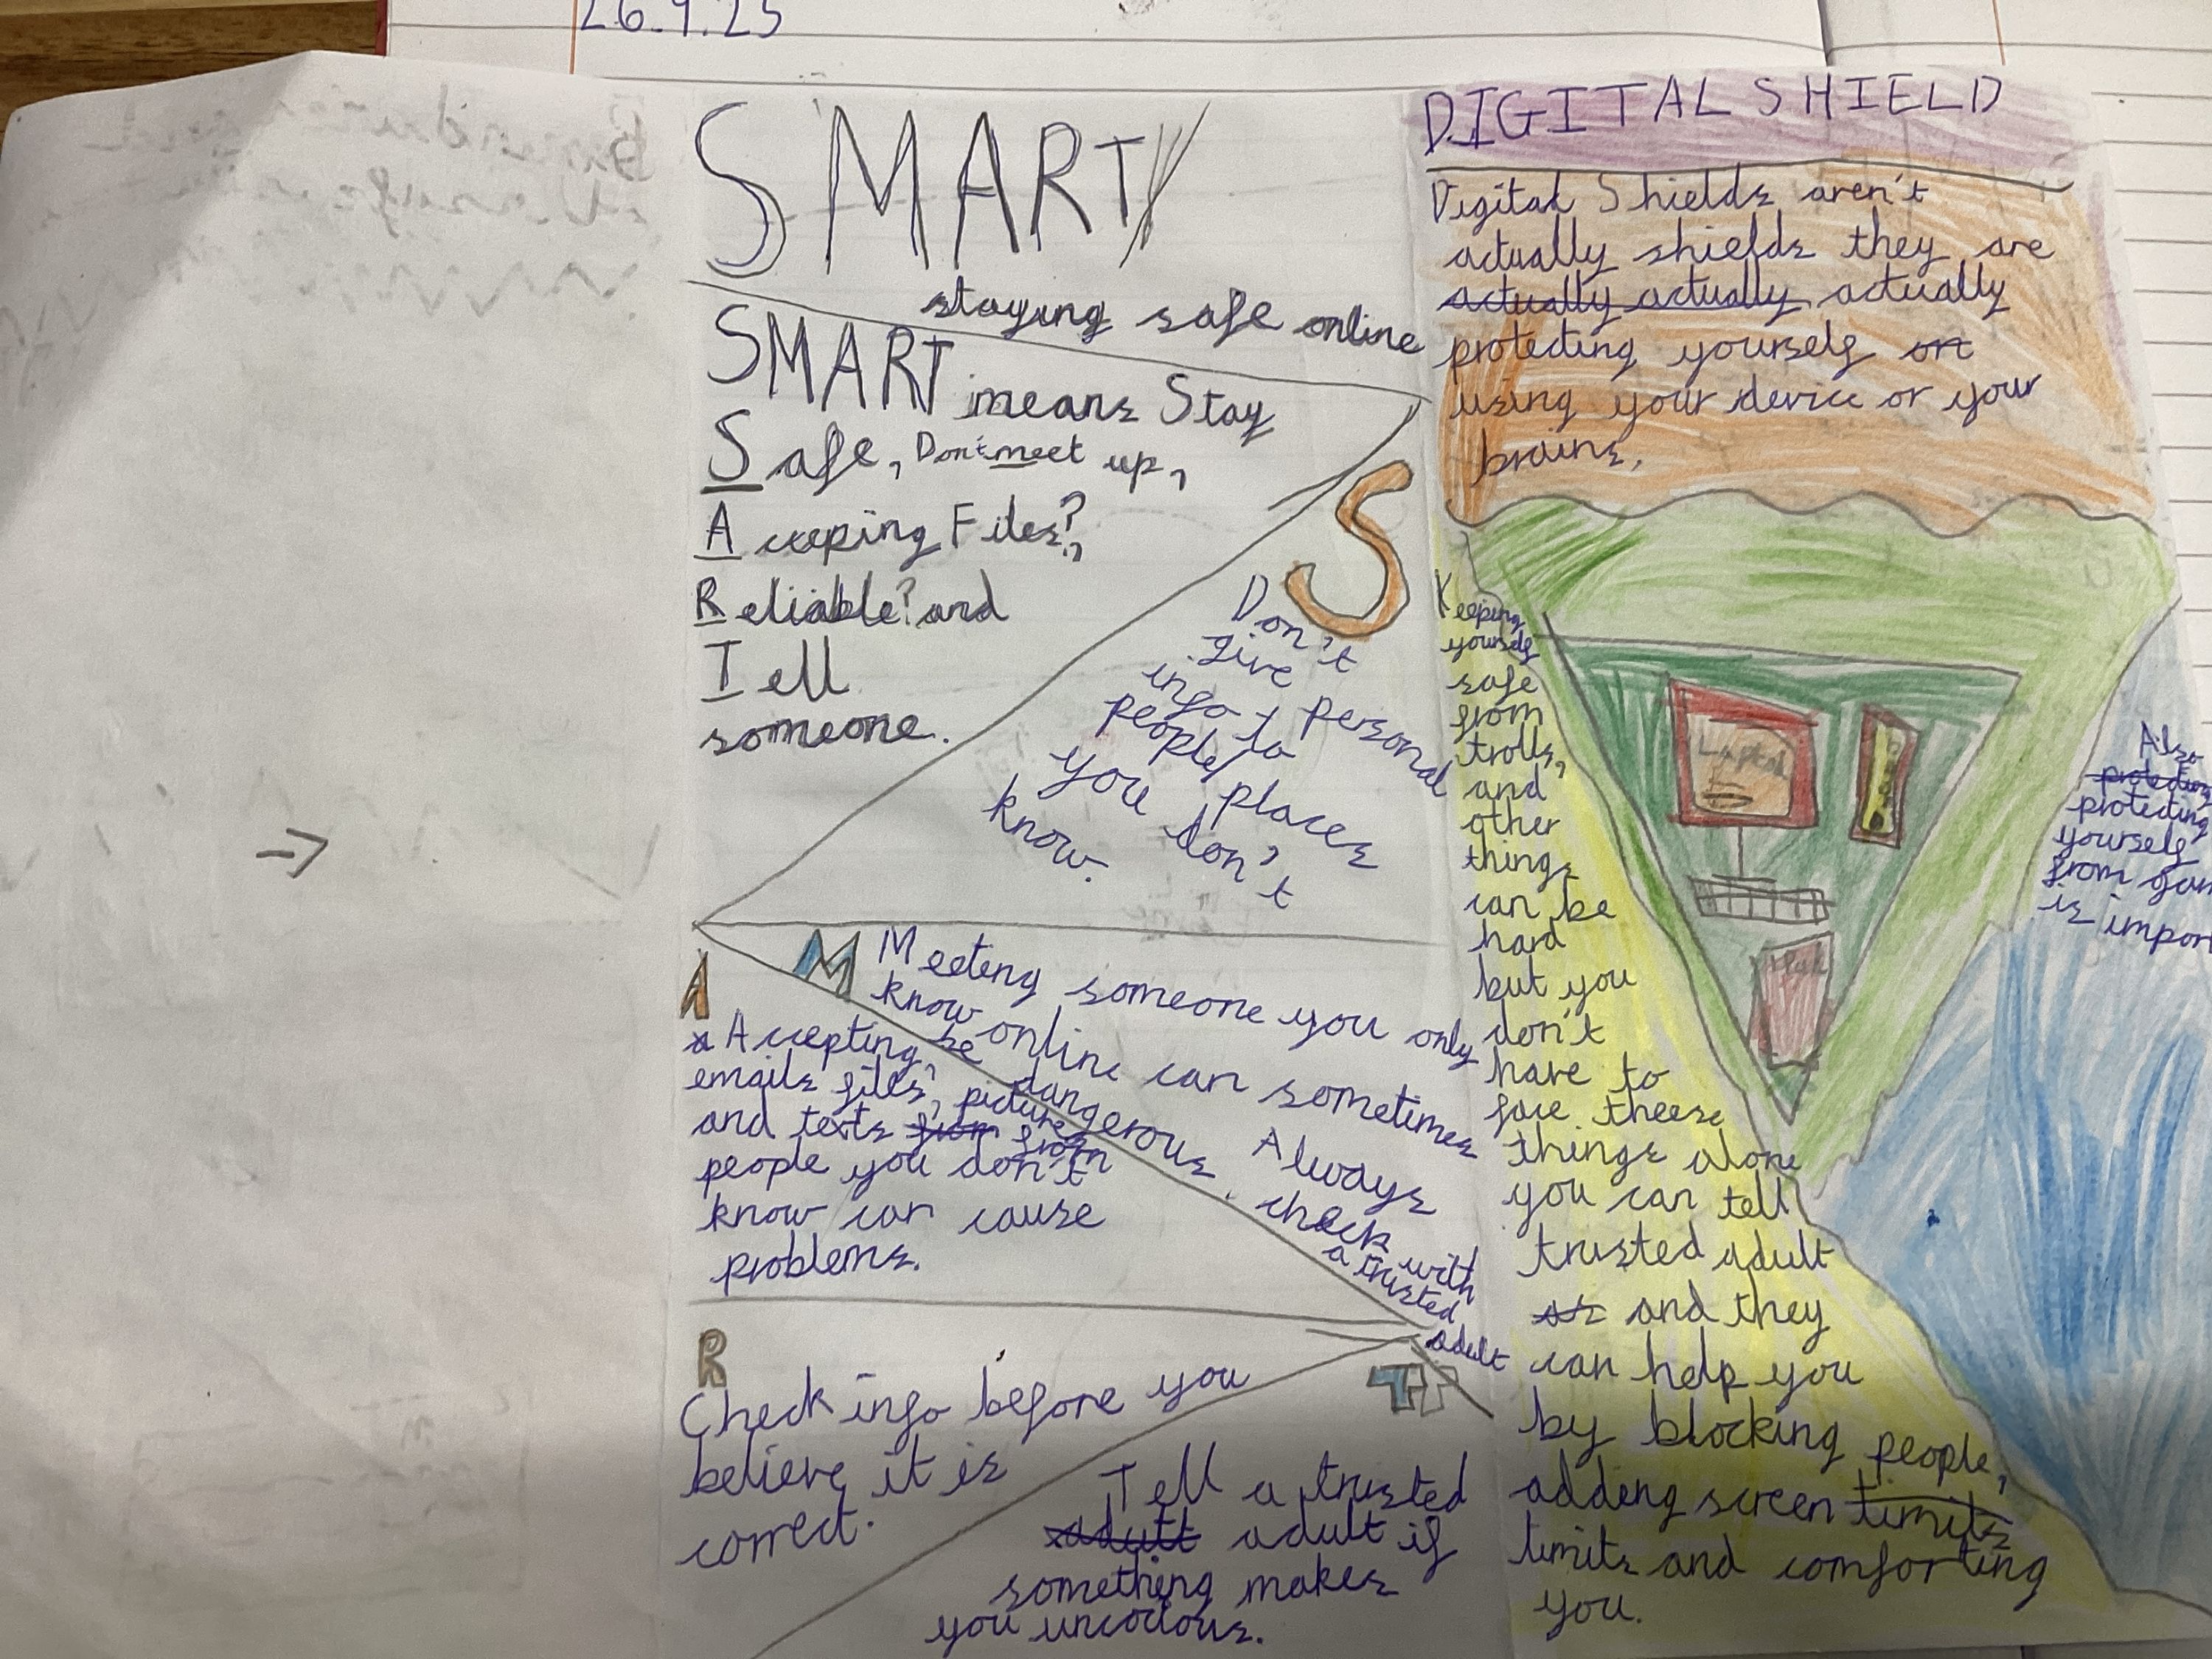 26.9.25
SMART
staying safe online
SMART means Stay
Safe, Don't meet up,
Acceping Files?,
Reliable? and
Tell
someone.
S
Don't
give personal
info to
people/places
you don't
know.
M
Meeting someone you only
know online can sometimes
be dangerous. Always
check with
a trusted
adult
A
Accepting,
emails files, pictures
and texts from from
people you don't
know can cause
problems.
R
Check info before you
believe it is
correct.
T
Tell a trusted
adult adult if
something makes
you uncodous.
DIGITAL SHIELD
Digital Shields aren't
actually shields they are
actually actually actually
protecting yourself on
using your device or your
brains.
Keeping
yourself
safe
from
trolls,
and
other
things
can be
hard
but you
don't
have to
face theese
things alone
you can tell
trusted adult
and they
can help you
by blocking people,
adding screen timits
limits and comforting
you.
Laptop
Also
protecting
protecting
yourself
from
is